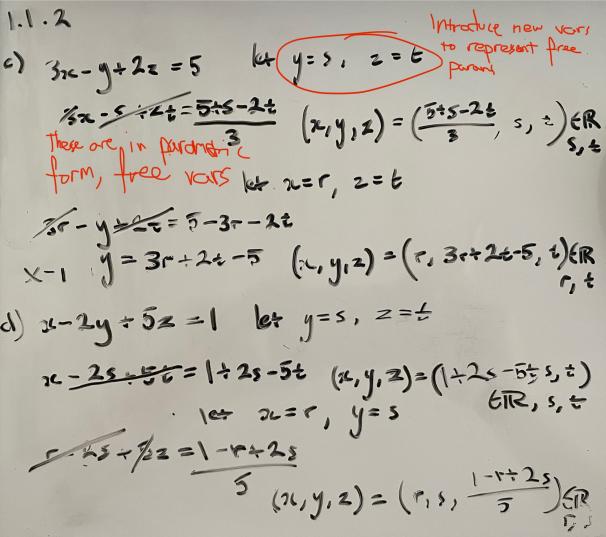 1.1.2
Introduce new vars
to represent free
params
c) 3x - y + 2z = 5 let y = s, z = t
3x - s + 2t = 5+s-2t / 3 (x, y, z) = (5+s-2t / 3, s, t) ∈ℝ s, t
These are in parametric
form, free vars
let x = r, z = t
3r - y + 2t = 5 - 3r - 2t
x-1 y = 3r + 2t - 5 (x, y, z) = (r, 3r + 2t - 5, t) ∈ℝ r, t
d) x - 2y + 5z = 1 let y = s, z = t
x - 2s + 5t = 1 + 2s - 5t (x, y, z) = (1 + 2s - 5t, s, t)
∈ℝ, s, t
let x = r, y = s
r - 2s + 5z = 1 - r + 2s / 5
(x, y, z) = (r, s, 1 - r + 2s / 5) ∈ℝ r, s